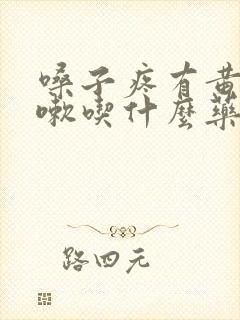 嗓子疼有黄
嗽喫什麼藥
路四元